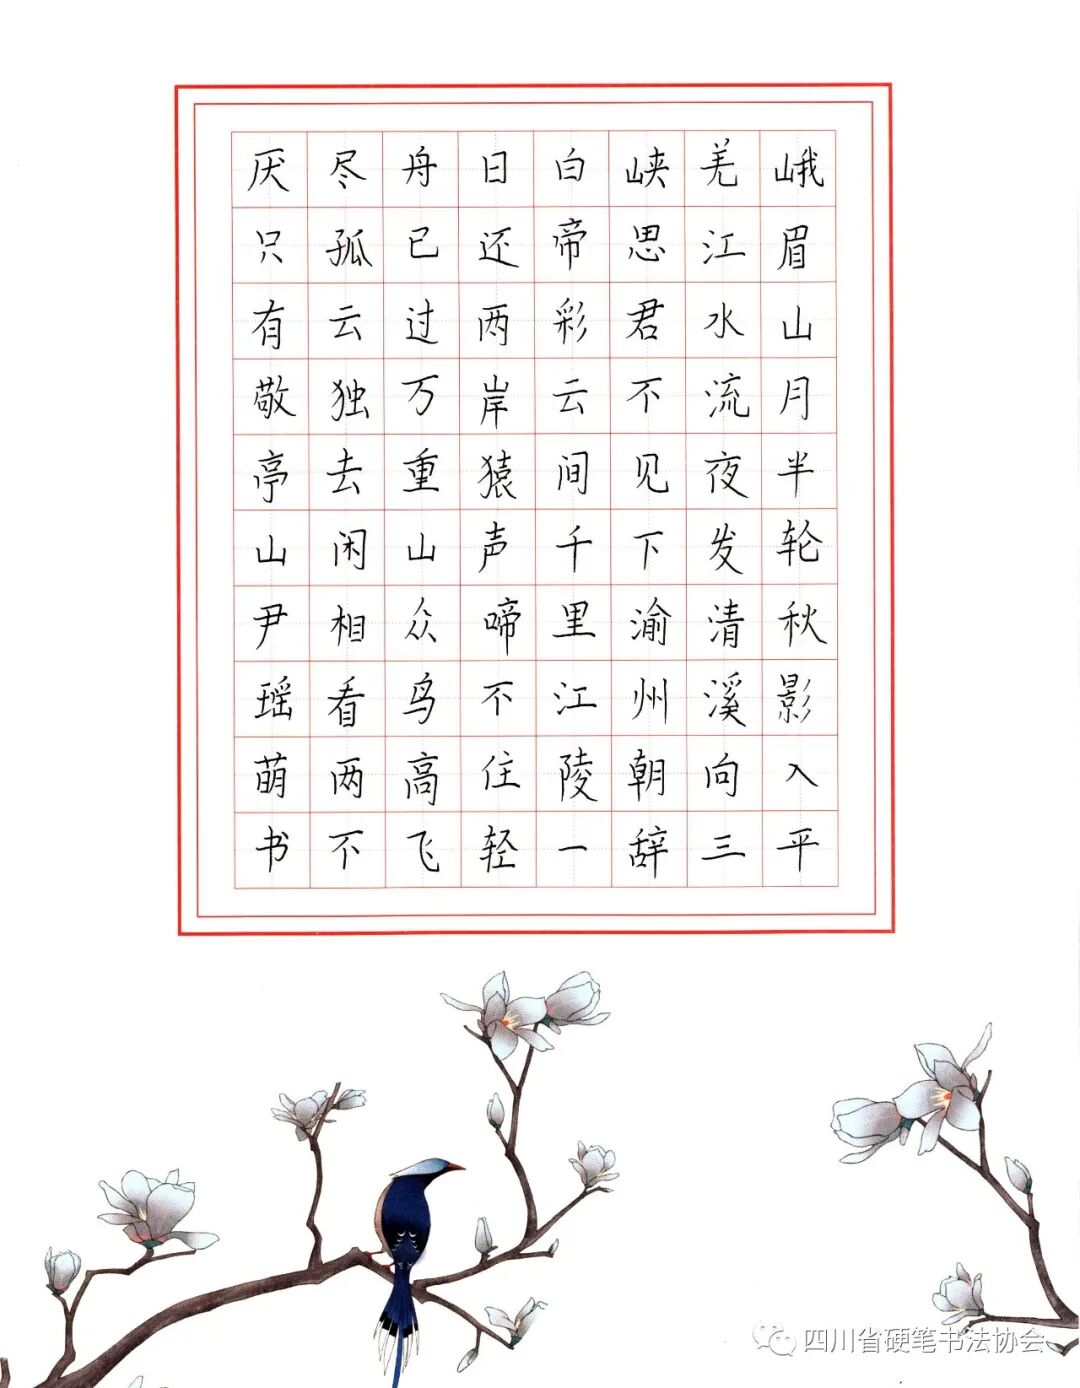 峨眉山月半轮秋影入平
羌江水流夜发清溪向三
峡思君不见下渝州朝辞
白帝彩云间千里江陵一
日还两岸猿声啼不住轻
舟已过万重山众鸟高飞
尽孤云独去闲相看两不
厌只有敬亭山尹瑶萌书
四川省硬笔书法协会